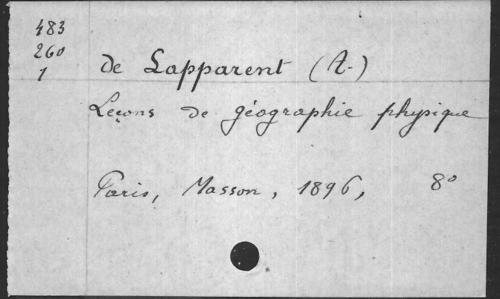 483
260
1
de Lapparent (A.)
Leçons de géographie physique
Paris, Masson, 1896, 8°